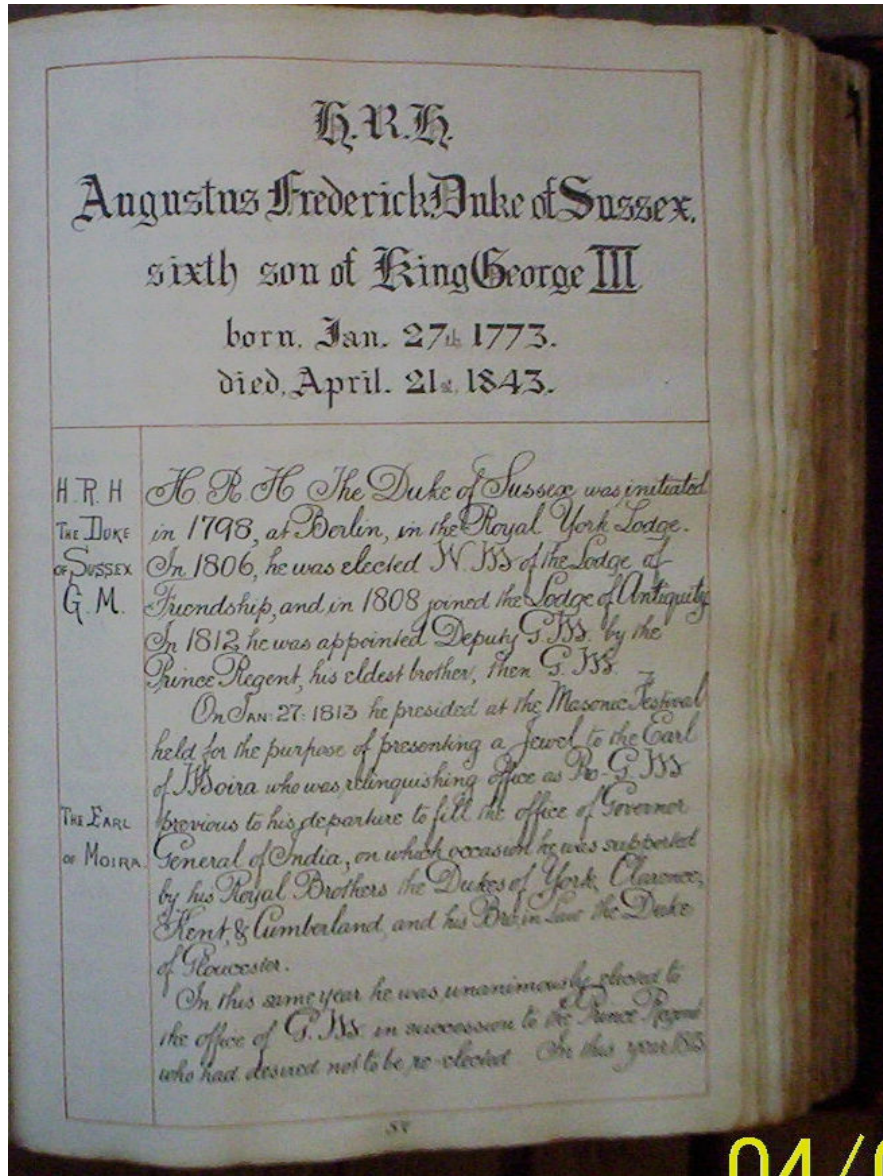 H.R.H.
Augustus Frederick Duke of Sussex,
sixth son of King George III
born, Jan. 27th 1773.
died, April. 21st, 1843.
H. R. H
THE DUKE
OF SUSSEX
G. M.
H R H The Duke of Sussex was initiated
in 1798, at Berlin, in the Royal York Lodge.
In 1806, he was elected W. M of the Lodge of
Friendship, and in 1808 joined the Lodge of Antiquity
In 1812, he was appointed Deputy G. M. by the
Prince Regent, his eldest brother, then G. M.
On JAN: 27: 1813 he presided at the Masonic Festival
held for the purpose of presenting a Jewel to the Earl
of Moira who was relinquishing office as Pro-G. M
THE EARL
OF MOIRA.
previous to his departure to fill the office of Governor
General of India, on which occasion he was supported
by his Royal Brothers the Dukes of York, Clarence,
Kent, & Cumberland, and his Bro in Law the Duke
of Gloucester.
In this same year he was unanimously elected to
the office of G. M. in succession to the Prince Regent
who had desired not to be re-elected. In this year 1813
04/